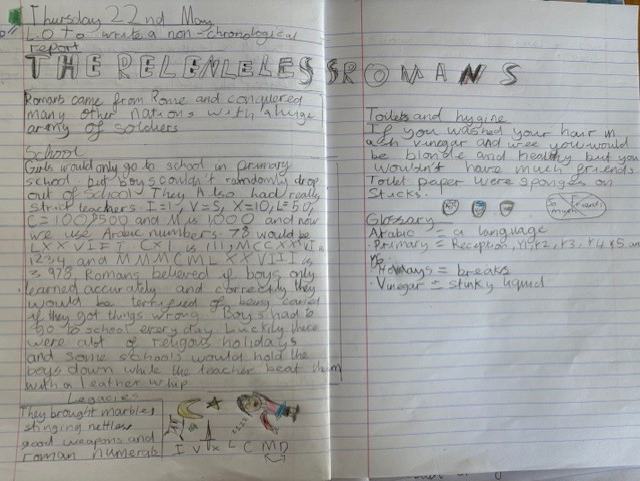 Thursday 22nd May
L.O To write a non-chronological
report
THE RELENLELESS ROMANS
Romans came from Rome and conquered
many other nations with a huge
army of soldiers
School
Girls would only go to school in primary
school but boys couldn't randomly drop
out of school. They Also had really
strict teachers. I=1, V=5, X=10, L=50,
C=100, 500 and M is 1000 and now
we use Arabic numbers. 78 would be
LXXVIII, CXI is 111, MCCXX
1234 and MMMCMLXXVIII is
3,978. Romans believed if boys only
learned accurately and correctly they
would be terrified of being caned
if they got things wrong. Boys had to
go to school every day. Luckily there
were alot of religous holidays
and some schools would hold the
boys down while the teacher beat them
with a leather whip
Legacies
They brought marbles
stinging nettles
good weapons and
roman numerals
I V X L C M D
Toilets and hygine
If you washed your hair in
ash vinegar and wee you would
be blonde and healthy but you
wouldn't have much friends
Toilet paper were sponges on
Sticks.
So
much
friends
Glossary
Arabic = a language
Primary = Reception, Y1, Y2, Y3, Y4, Y5 an
Y6
Holidays = breaks
Vinegar = stinky liquid